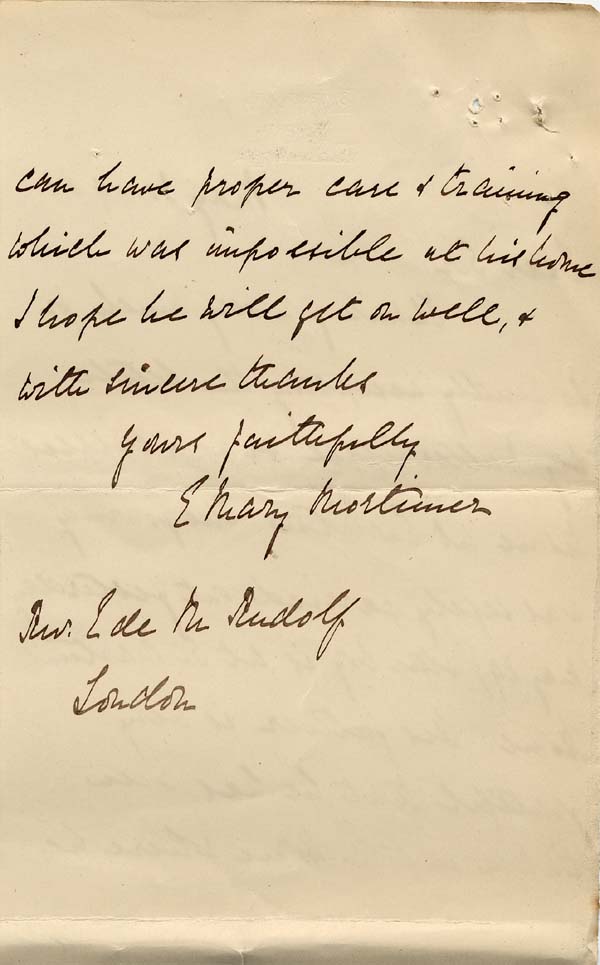 can have proper care & training
which was impossible at his home
I hope he will get on well, &
with sincere thanks
Yours faithfully
E Mary Mortimer
Rev. E de M Rudolf
London